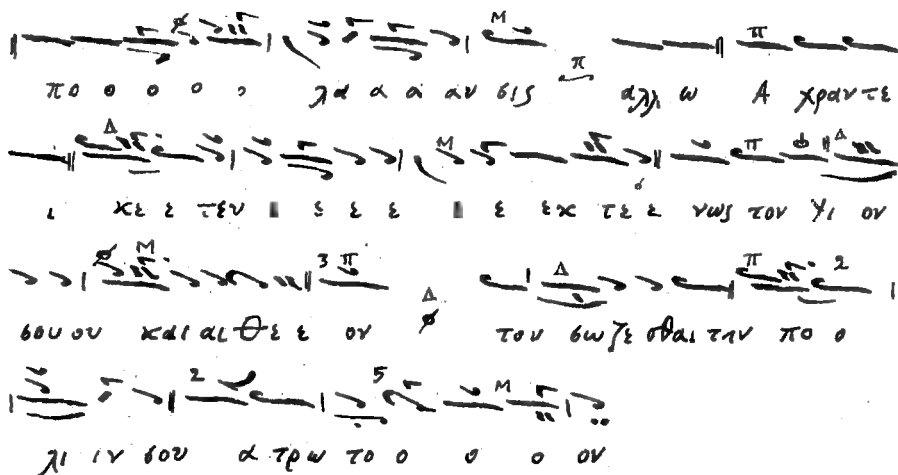 πο ο ο ο ο λα α α αυ σις π αλλ ω Α χραν τε
ι κε ε τευ ε ε ε ε ε εκ τε ε νως τον Υι ον
σου ου και αι Θε ε ον Δ τον σωζε σθαι την πο ο
λι ιν σου α τρω το ο ο ο ον